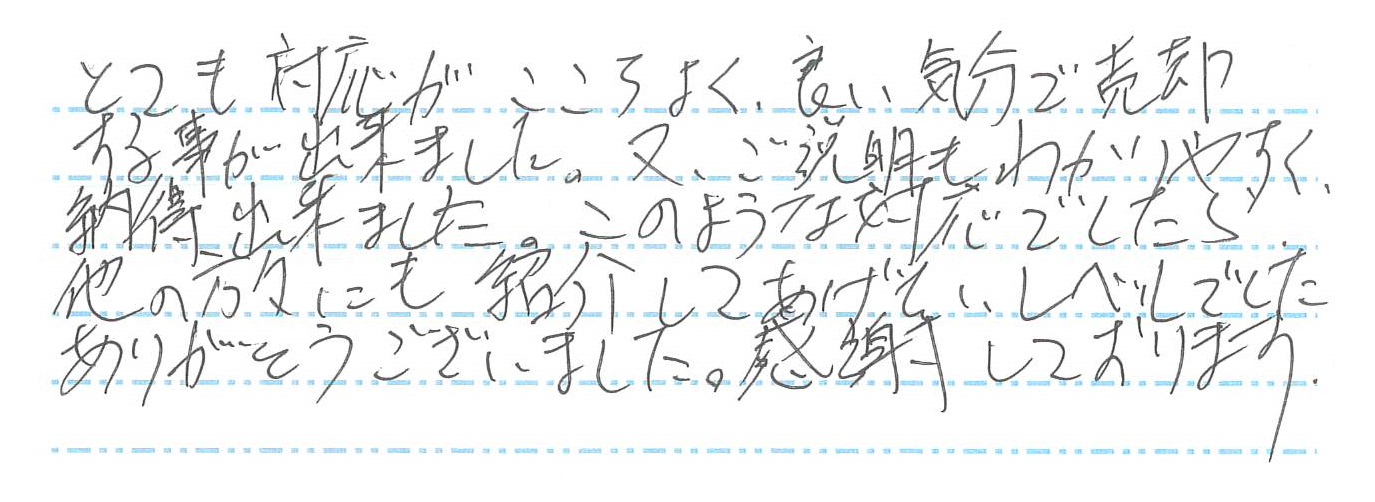 とても対応がこころよく、良い気分で売却
する事が出来ました。又、ご説明もわかりやすく、
納得出来ました。このような対応でしたら、
他の方々にも紹介してあげたいレベルでした
ありがとうございました。感謝しております。